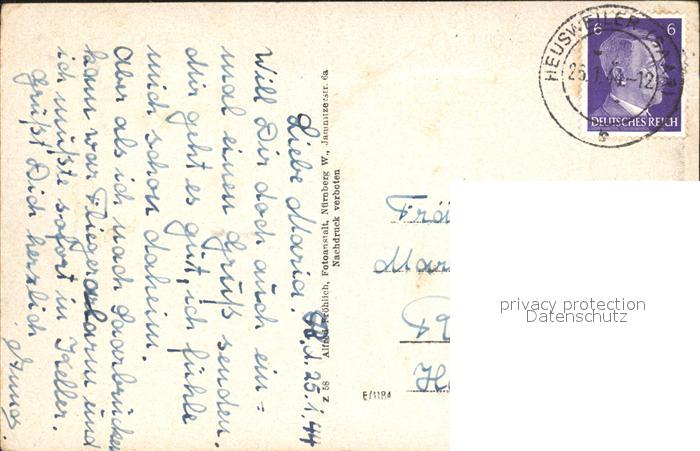 H., d. 25.1.44
Liebe Maria!
Will Dir doch auch ein=
mal einen Gruß senden.
Mir geht es gut, ich fühle
mich schon daheim.
Aber als ich nach Saarbrücken
kam war Fliegeralarm und
ich mußte sofort in Keller.
Grüßt Dich herzlich
Z 58 Alfred Fröhlich, Fotoanstalt, Nürnberg W., Jamnitzerstr. 6a
Nachdruck verboten
HEUSWEILER (SAAR)
25.1.44-12
b
6 6
DEUTSCHES REICH
Frä
Mar
He
E/1184
privacy protection
Datenschutz